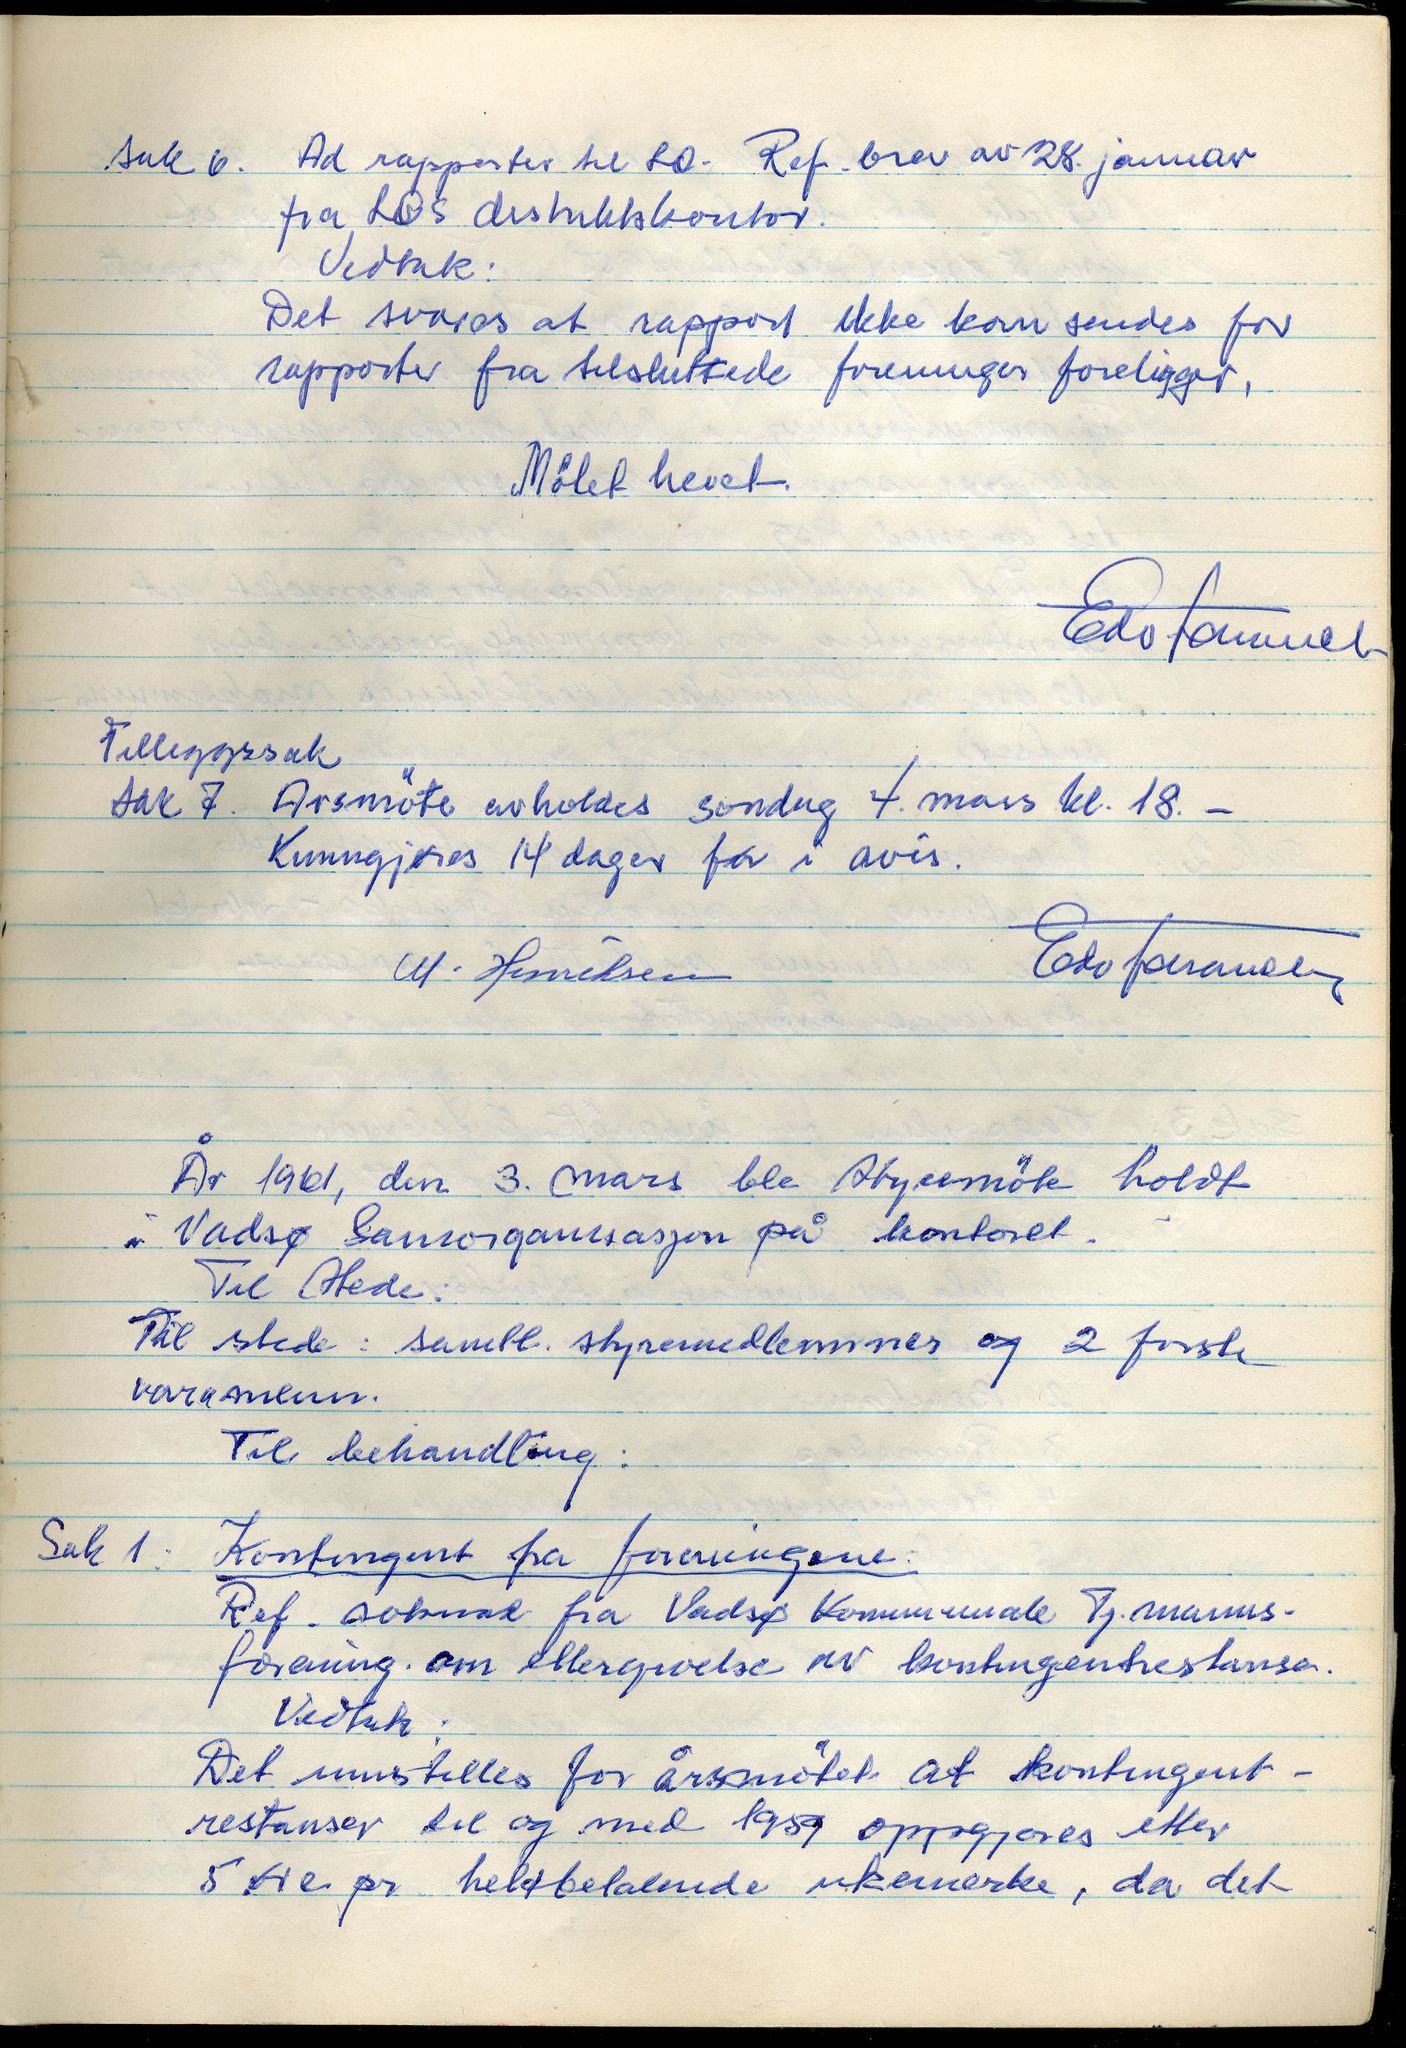 Sak 6. Ad rapporter til LO. Ref. brev av 28. januar
fra LOS distriktskontor.
Vedtak:
Det svares at rapport ikke kan sendes før
rapporter fra tilsluttede foreninger foreligger.
Møtet hevet.
Tilleggssak
Sak 7. Årsmöte avholdes søndag 4. mars kl. 18. –
Kunngjøres 14 dager før i avis.
M. Henriksen
År 1961, den 3. mars ble styremöte holdt
i Vadsø Samorganisasjon på kontoret.
Til stede:
Til stede: samtl. styremedlemmer og 2 første
varamenn.
Til behandling:
Sak 1: Kontingent fra foreningene:
Ref. søknad fra Vadsø Kommunale Tj.manns-
forening om ettergivelse av kontingentrestanse.
Vedtak:
Det innstilles for årsmötet at kontingent-
restanser til og med 1959 oppgjøres etter
5 øre pr helbetalende ukemerke, da det